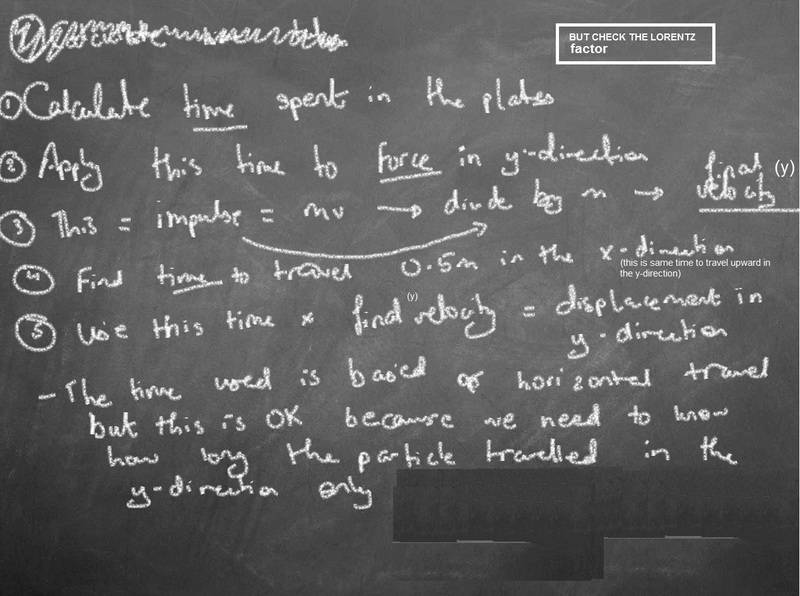 BUT CHECK THE LORENTZ
factor
① Calculate time spent in the plates
② Apply this time to force in y-direction
③ This = impulse = mv → divide by m → final velocity (y)
④ Find time to travel 0.5m in the x-direction
(this is same time to travel upward in
the y-direction)
⑤ Use this time × final velocity (y) = displacement in
y-direction
- The time used is based of horizontal travel
but this is OK because we need to know
how long the particle travelled in the
y-direction only